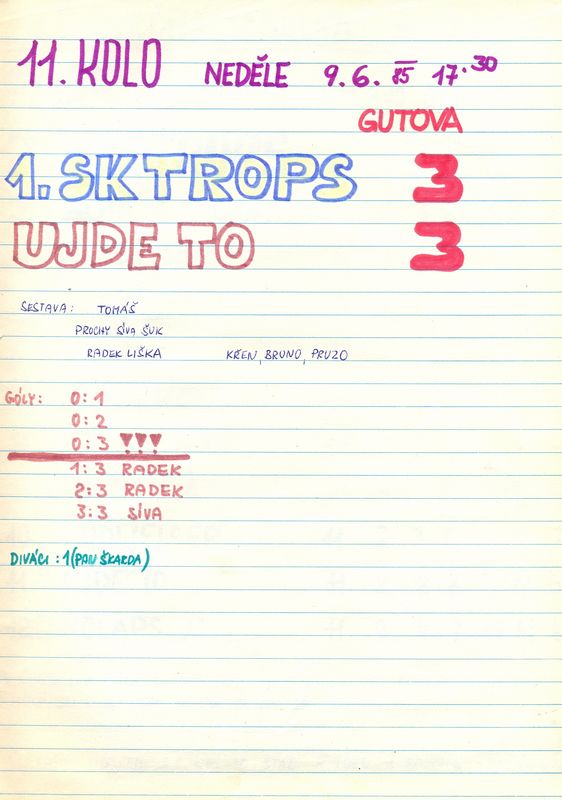 11. KOLO NEDĚLE 9.6. 85 17.30
GUTOVA
1. SK TROPS 3
UJDE TO 3
SESTAVA: TOMÁŠ
PROCHY SÍVA ŠUK
RADEK LIŠKA KŘEN, BRUNO, PRUZO
GÓLY: 0:1
0:2
0:3 !!!
1:3 RADEK
2:3 RADEK
3:3 SÍVA
DIVÁCI : 1 (PAN ŠKARDA)